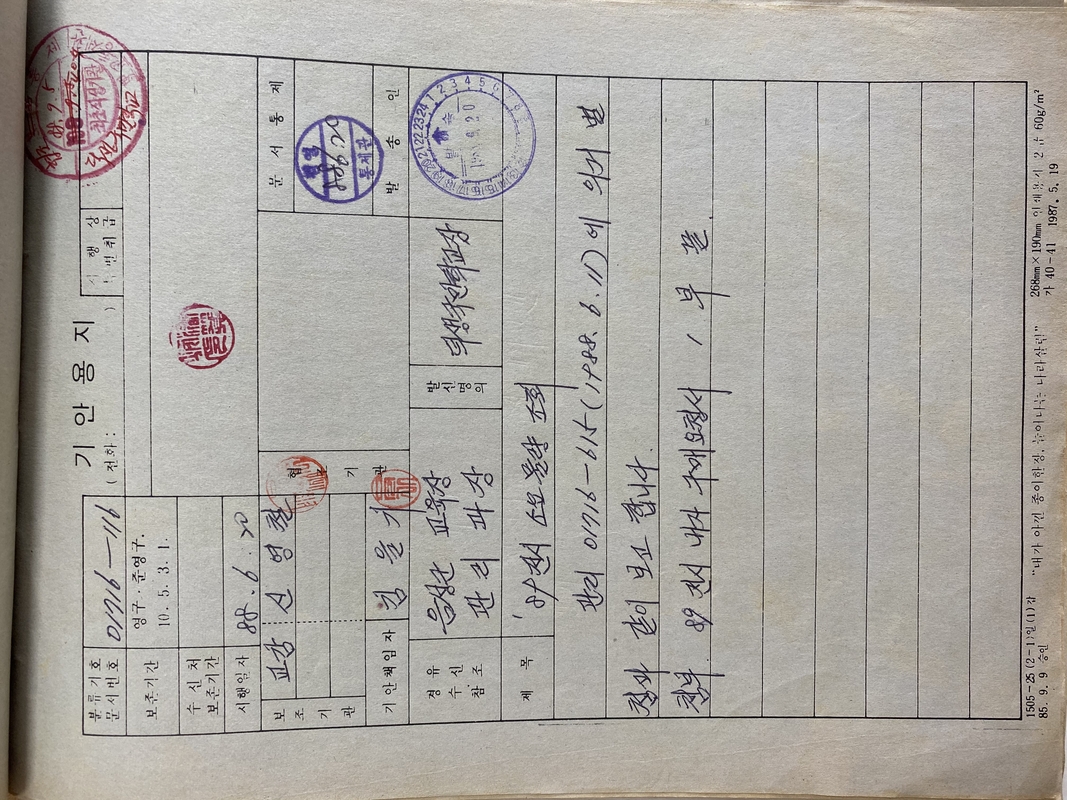 기 안 용 지
분류기호
문서번호
01716-116
(전화: )
시 행 상
특별취급
보존기간
영구·준영구.
10. 5. 3. 1.
수 신 처
보존기간
시행일자
88. 6. 20
보 조 기 관
교감 신 영 철
협 조 기 관
문 서 통 제
통제관
기안책임자
김 을 기
발 송 인
발송
경 유
수 신
참 조
음성군 교육장
관 리 과 장
발 신
명 의
제 목
'89 전시 소요 물량 조회
관리 01716-615(1988. 6. 11)에 의거 별
같이 보고 합니다.
첨부. 89 전시 내자 구매요청서 1 부 끝.
1505-25(2-1)일(1)갑
85. 9. 9 승인
"내가 아낀 종이한장, 늘어나는 나라살림"
268mm×190mm 인쇄용지 2급 60g/m²
가 40-41 1987. 5. 19